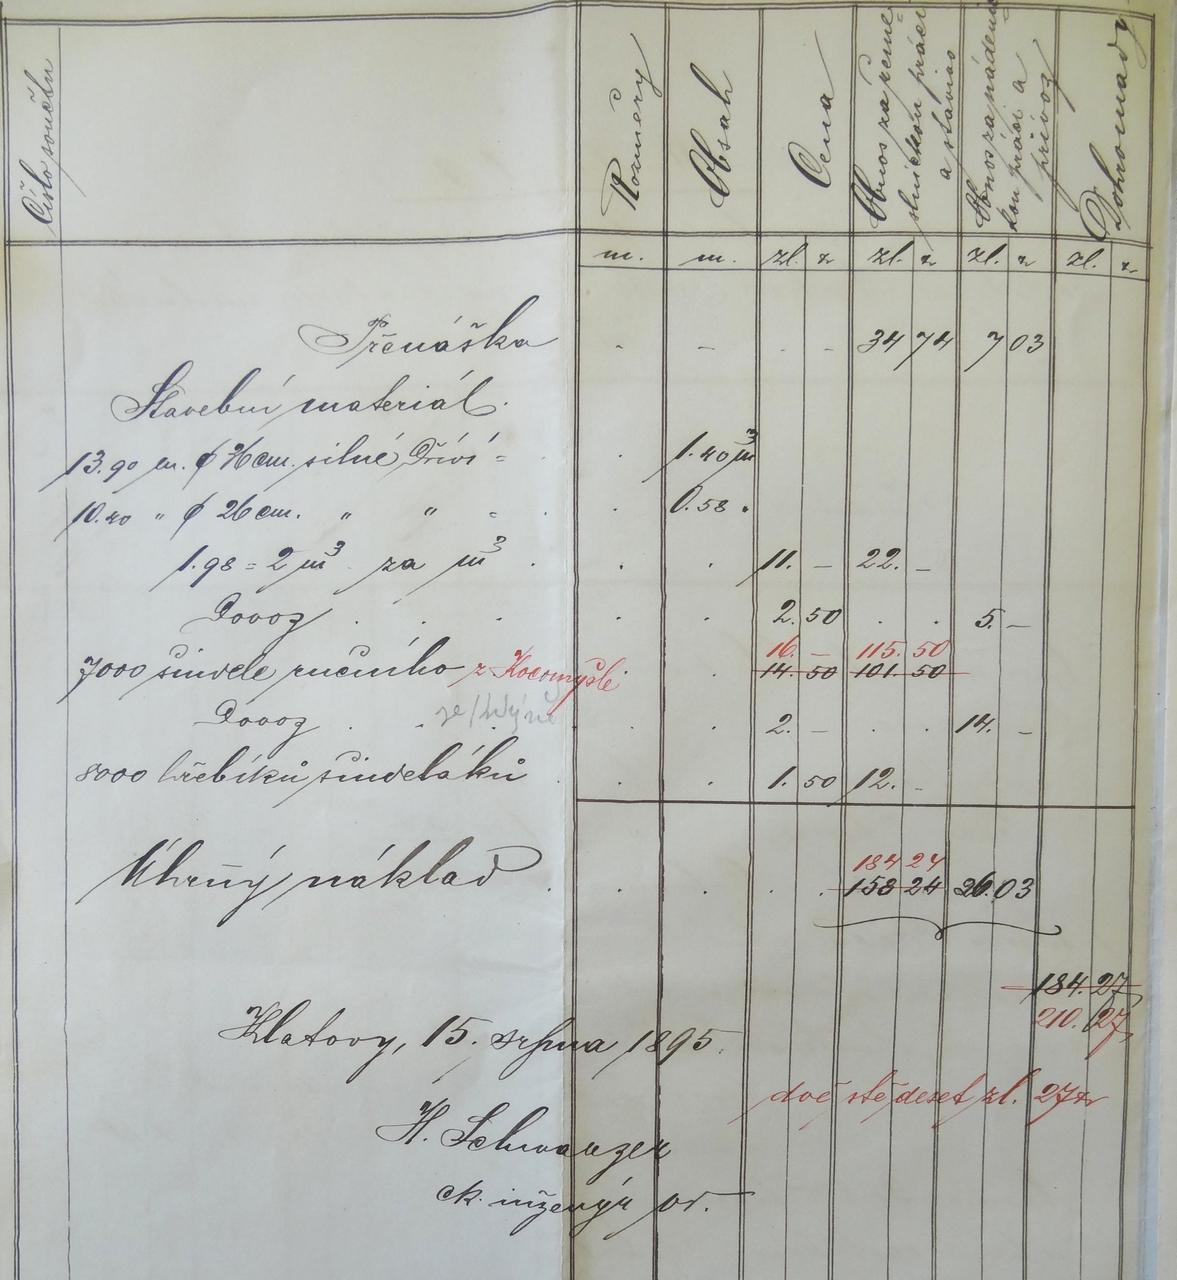 Číslo součtu
Rozměry
Obsah
Cena
Obnos za řeme-
slnickou práci
a stavivo
Obnos za nádenic-
kou práci a
přívoz
Dohromady
m. m. zl. kr zl. kr zl. kr zl. kr
Přenáška - - - - 34 74 7 03
Stavební materiál.
13.90 m. ϕ 36 cm. silné dříví = 1.40 m³
10.40 " ϕ 26 cm. " " = 0.58 "
1.98 = 2 m³ za m³ 11. - 22. -
Dovoz 2. 50 5. -
16. - 115. 50
7000 šindele ručního z Kocomyšle 14. 50 101. 50
Dovoz 2. - 14. -
8000 hřebíků šindeláků 1. 50 12. -
184 24
Úhrný náklad 158 24 26.03
184.27
210. 27
Klatovy, 15. srpna 1895.
dvě stě deset zl. 27 kr
H. Schwanzer
ck. inženýr vr.